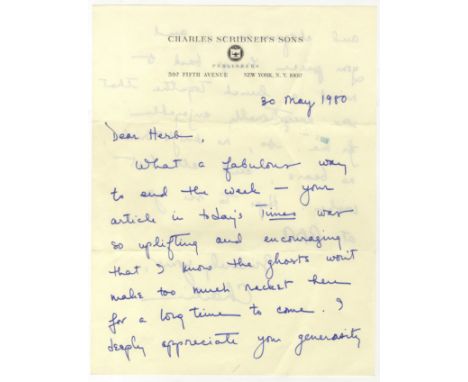 CHARLES SCRIBNER'S SONS
PUBLISHERS
597 FIFTH AVENUE NEW YORK, N. Y. 10017
30 May 1980
Dear Herb,
What a fabulous way
to end the week — your
article in today's Times was
so uplifting and encouraging
that I know the ghosts won't
make too much racket here
for a long time to come. I
deeply appreciate your generosity